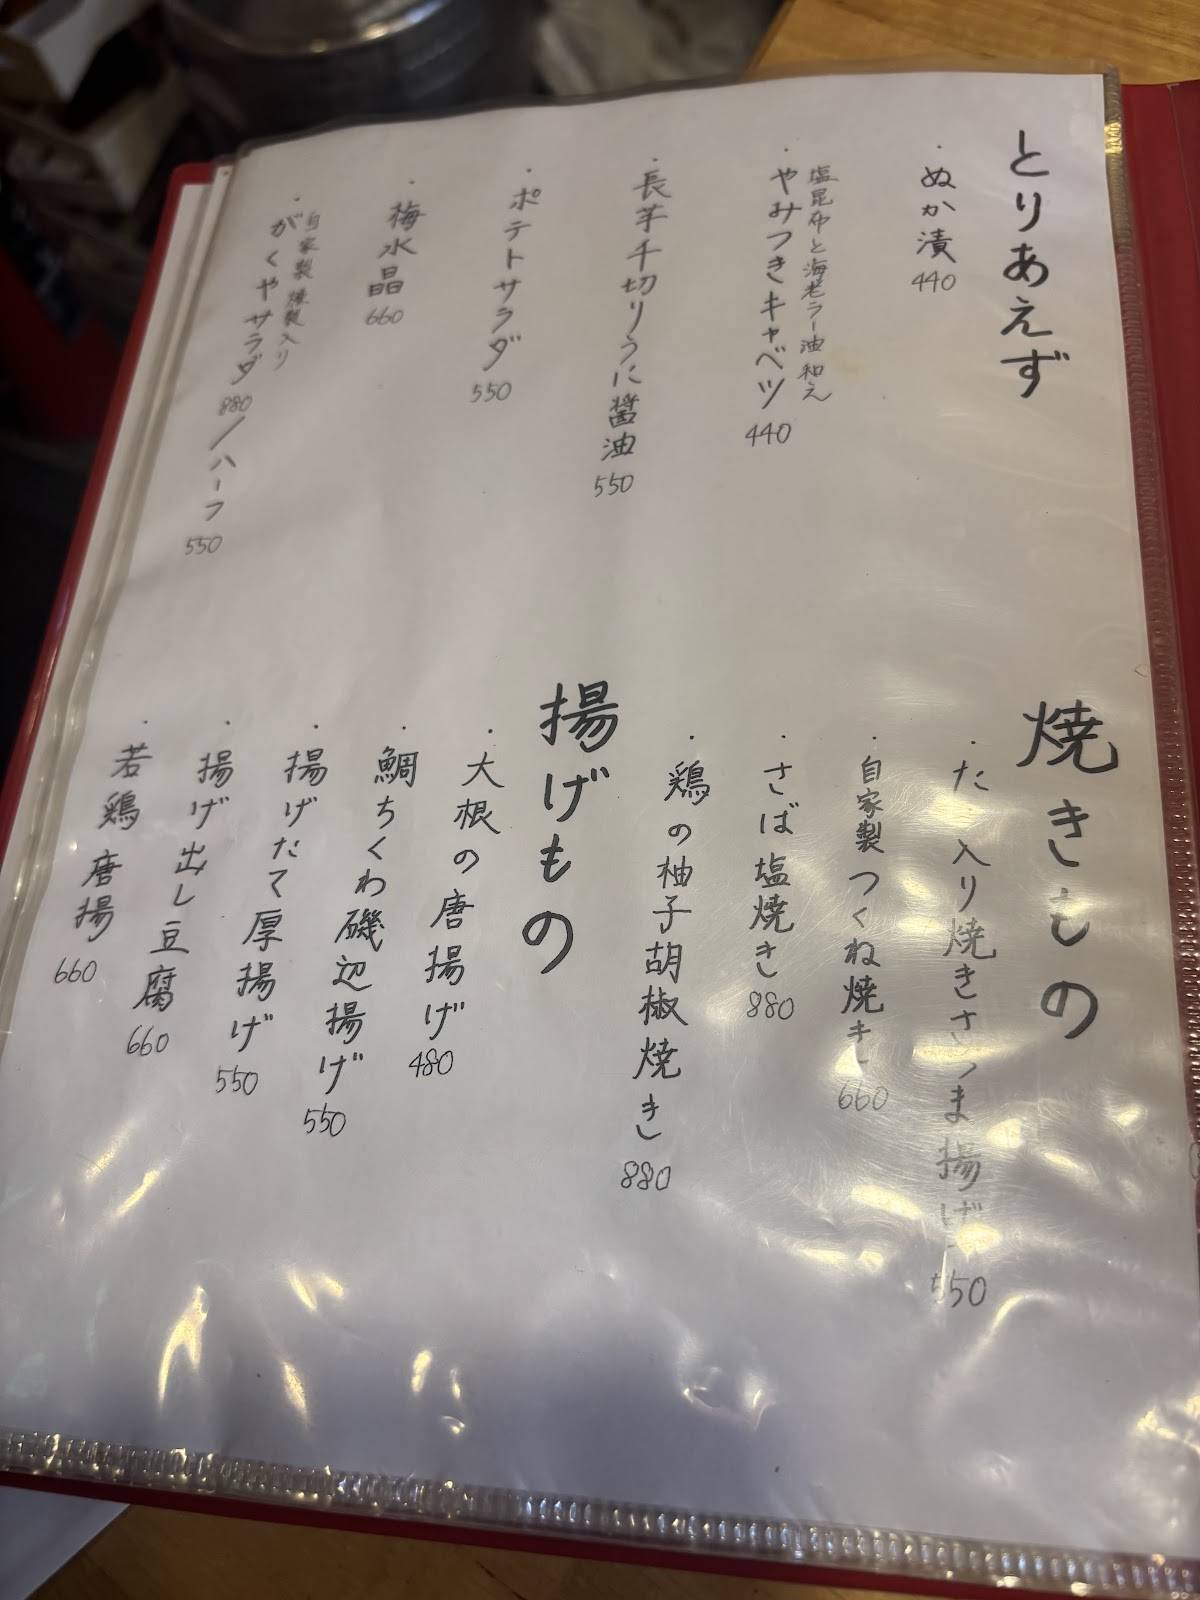 とりあえず
・ぬか漬 440
塩昆布と海老ラー油和え
・やみつきキャベツ 440
・長芋千切りうに醤油 550
・ポテトサラダ 550
・梅水晶 660
自家製燻製入り
・がくやサラダ 880/ハーフ 550
焼きもの
・た 入り焼きさつま揚げ 550
・自家製つくね焼き 660
・さば塩焼き 880
・鶏の柚子胡椒焼き 880
揚げもの
・大根の唐揚げ 480
・鯛ちくわ磯辺揚げ 550
・揚げたて厚揚げ 550
・揚げ出し豆腐 660
・若鶏唐揚 660